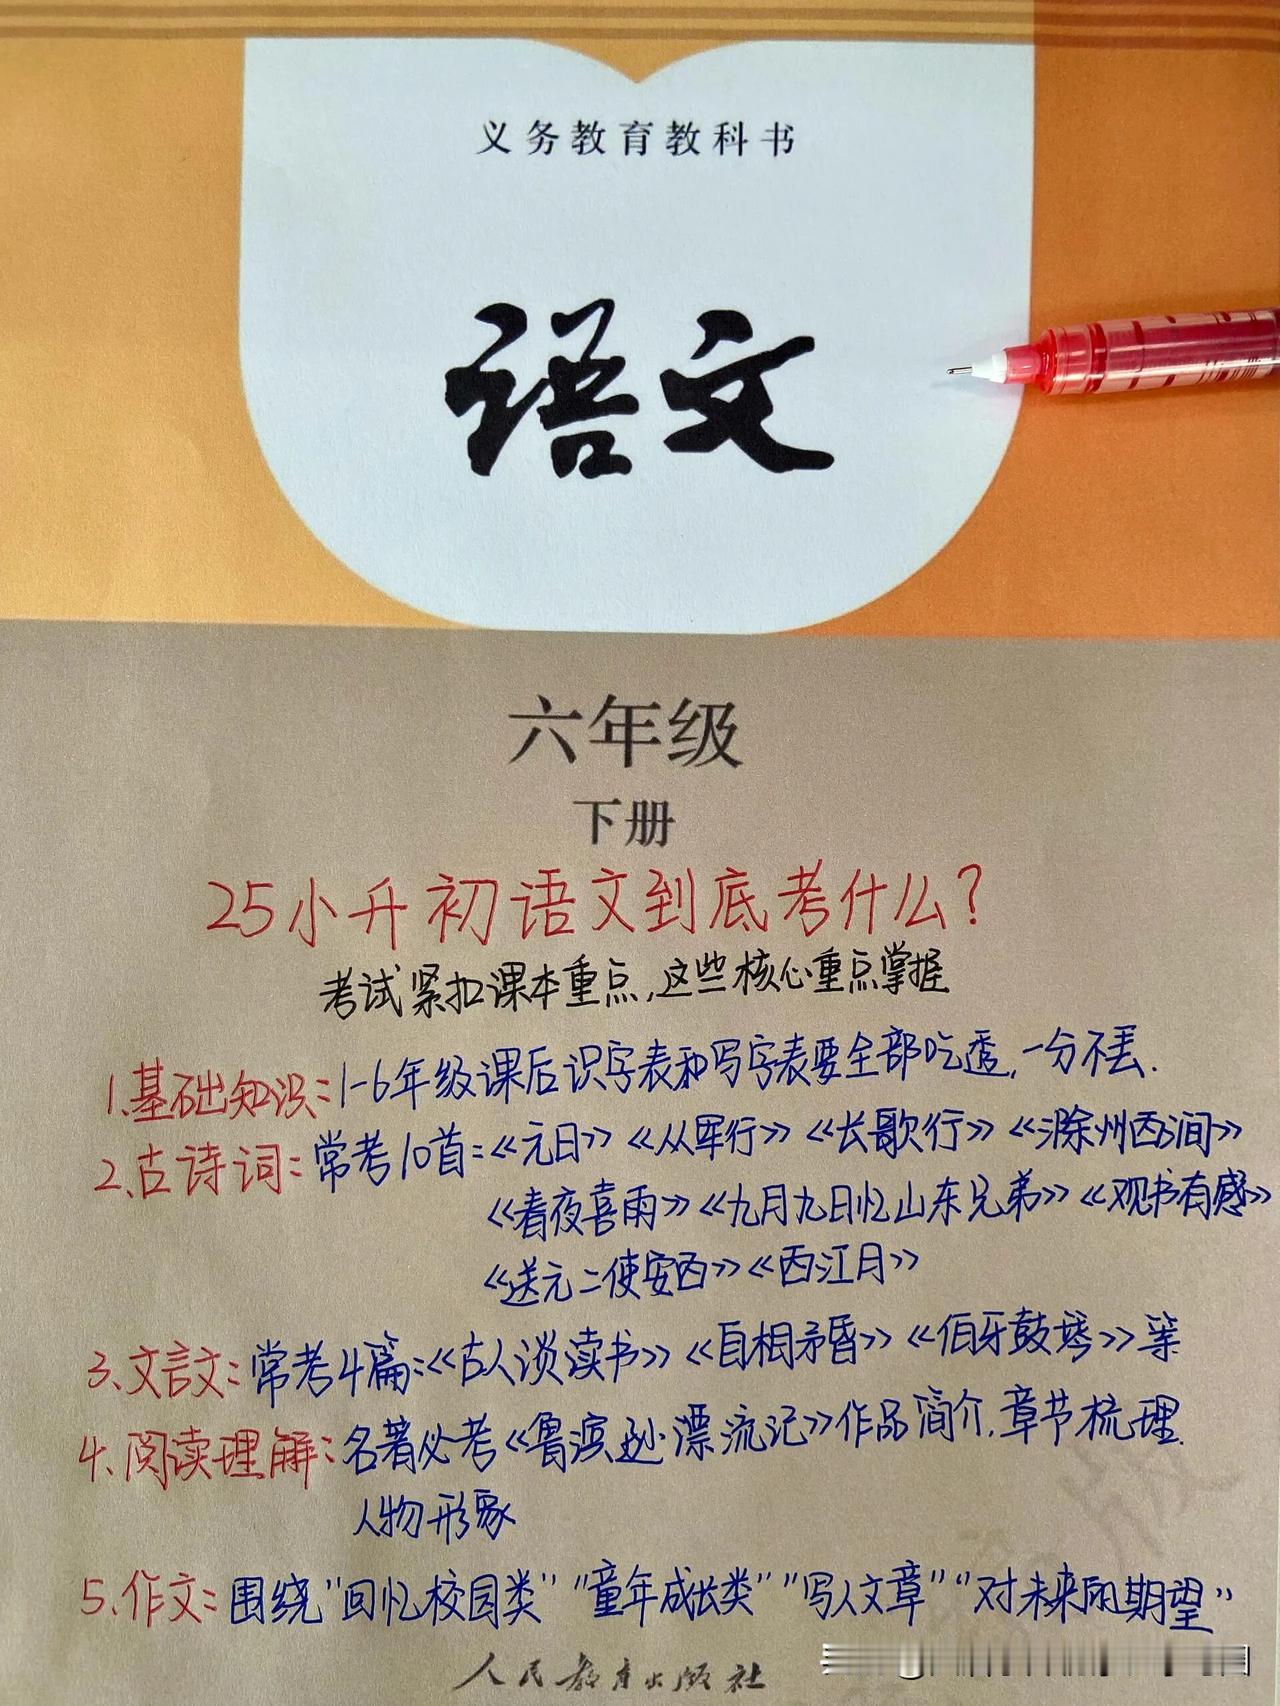 义务教育教科书
语文
六年级
下册
25小升初语文到底考什么?
考试紧扣课本重点,这些核心重点掌握
1.基础知识:1-6年级课后识字表和写字表要全部吃透,一分不丢.
2.古诗词:常考10首:《元日》《从军行》《长歌行》《滁州西涧》
《春夜喜雨》《九月九日忆山东兄弟》《观书有感》
《送元二使安西》《西江月》
3.文言文:常考4篇:《古人谈读书》《自相矛盾》《伯牙鼓琴》等
4.阅读理解:名著必考《鲁滨逊漂流记》作品简介,章节梳理.
人物形象
5.作文:围绕"回忆校园类""童年成长类""写人文章""对未来的期望"
人民教育出版社